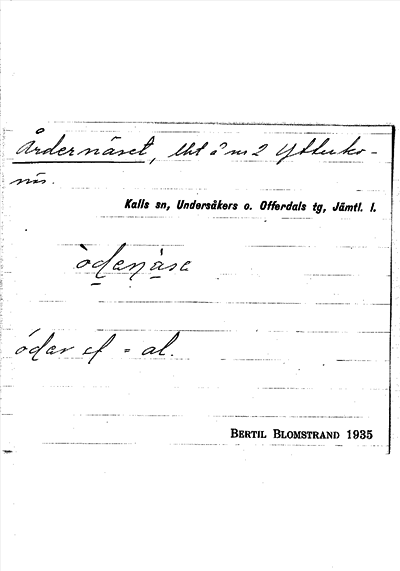 Årdernäset, lht å nr 2 Ytterko-
näs.
Kalls sn, Undersåkers o. Offerdals tg, Jämtl. l.
òdeṇàse
ódar ef = al.
BERTIL BLOMSTRAND 1935